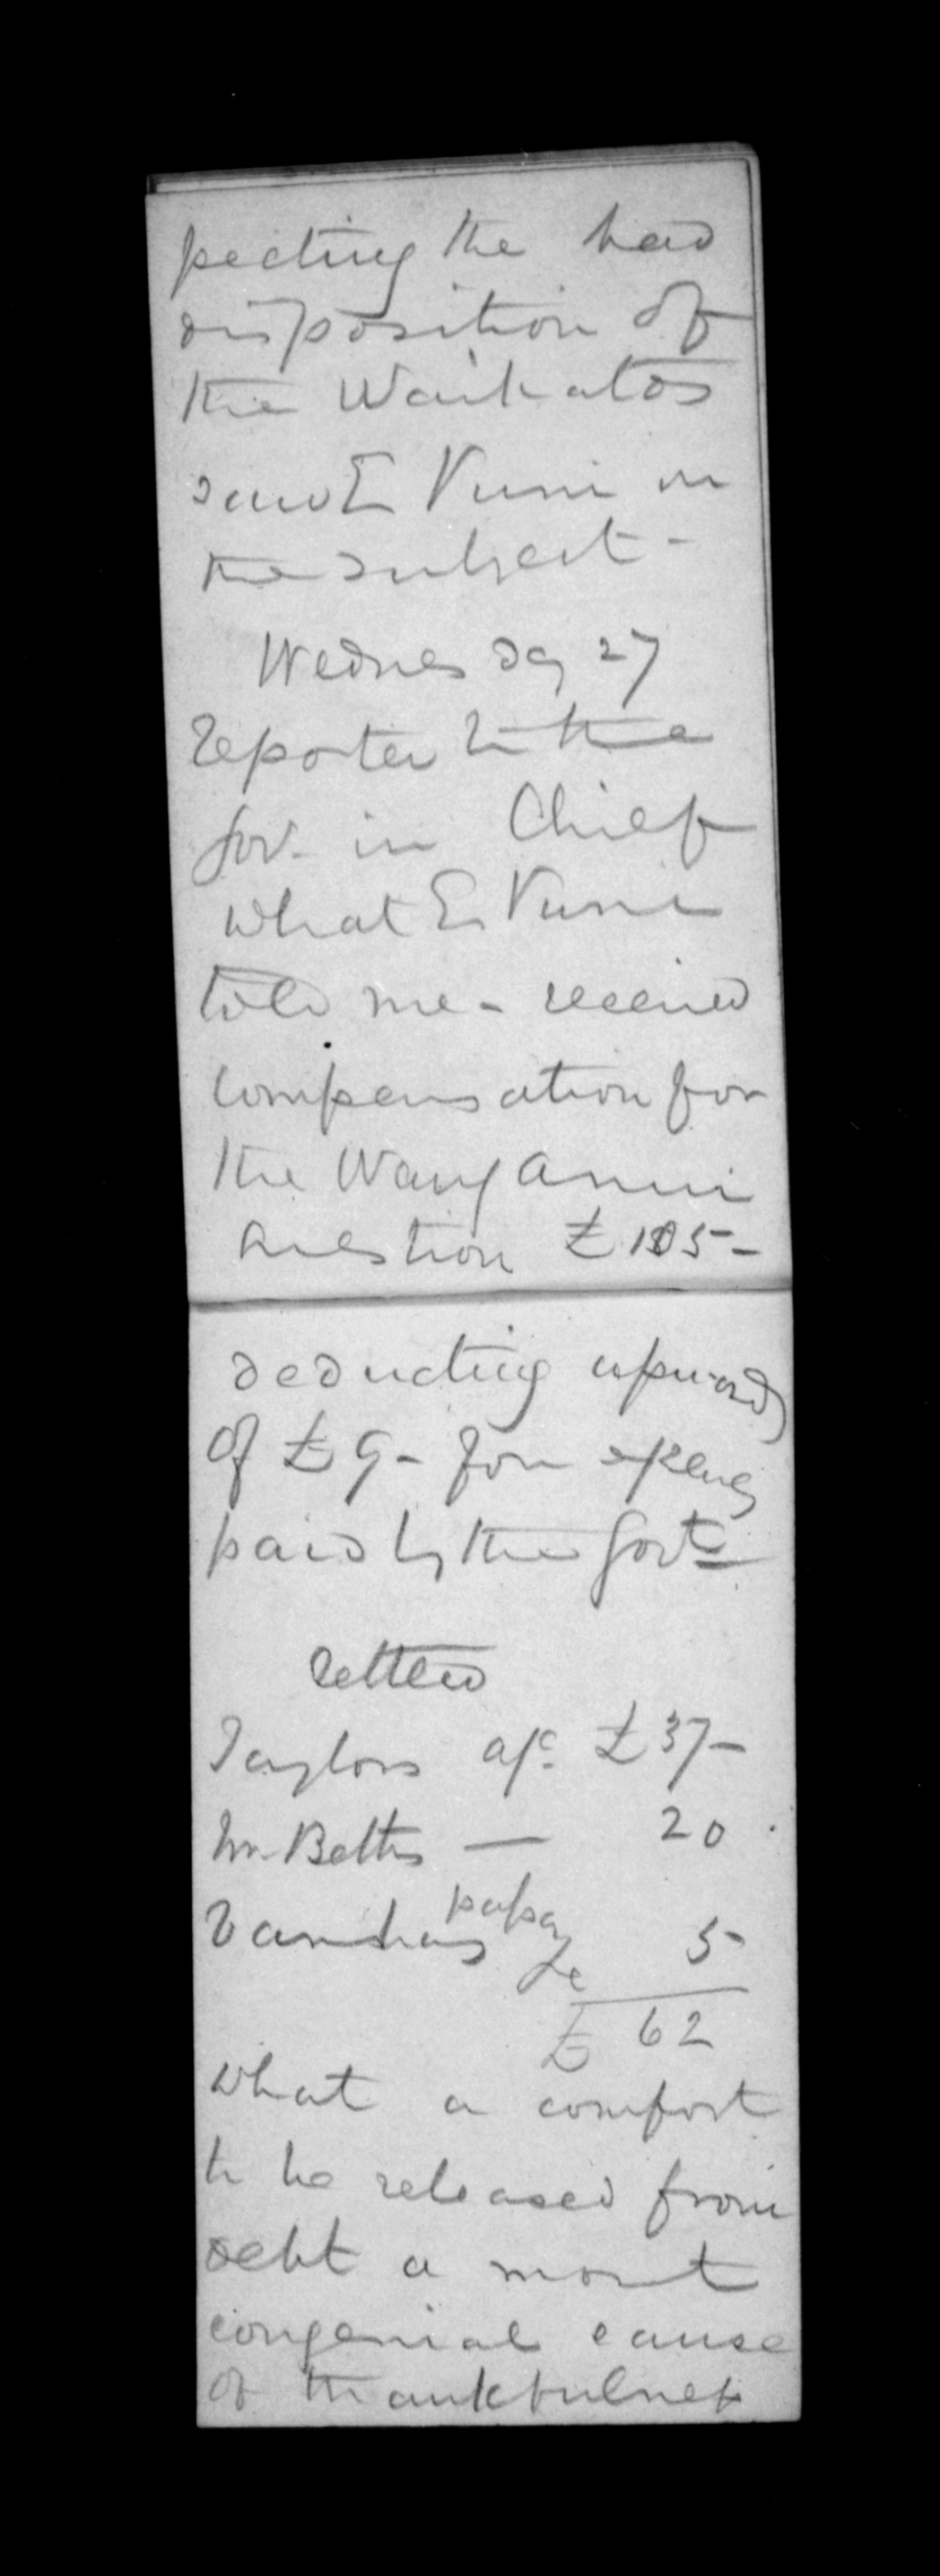 pecting the bad
disposition of
the Waikatos
saw E Puni on
the subject -
Wednesday 27
Reported to the
Gov. in Chief
what E Puni
told me - received
compensation for
the Wanganui
question £ 185 -
deducting upwards
of £ 9 - for expenses
paid by the Govt
settled
Taylors a/c £ 37 -
Mr Betts — 20
papa
5
£ 62
What a comfort
to be released from
debt a most
congenial cause
of thankfulness